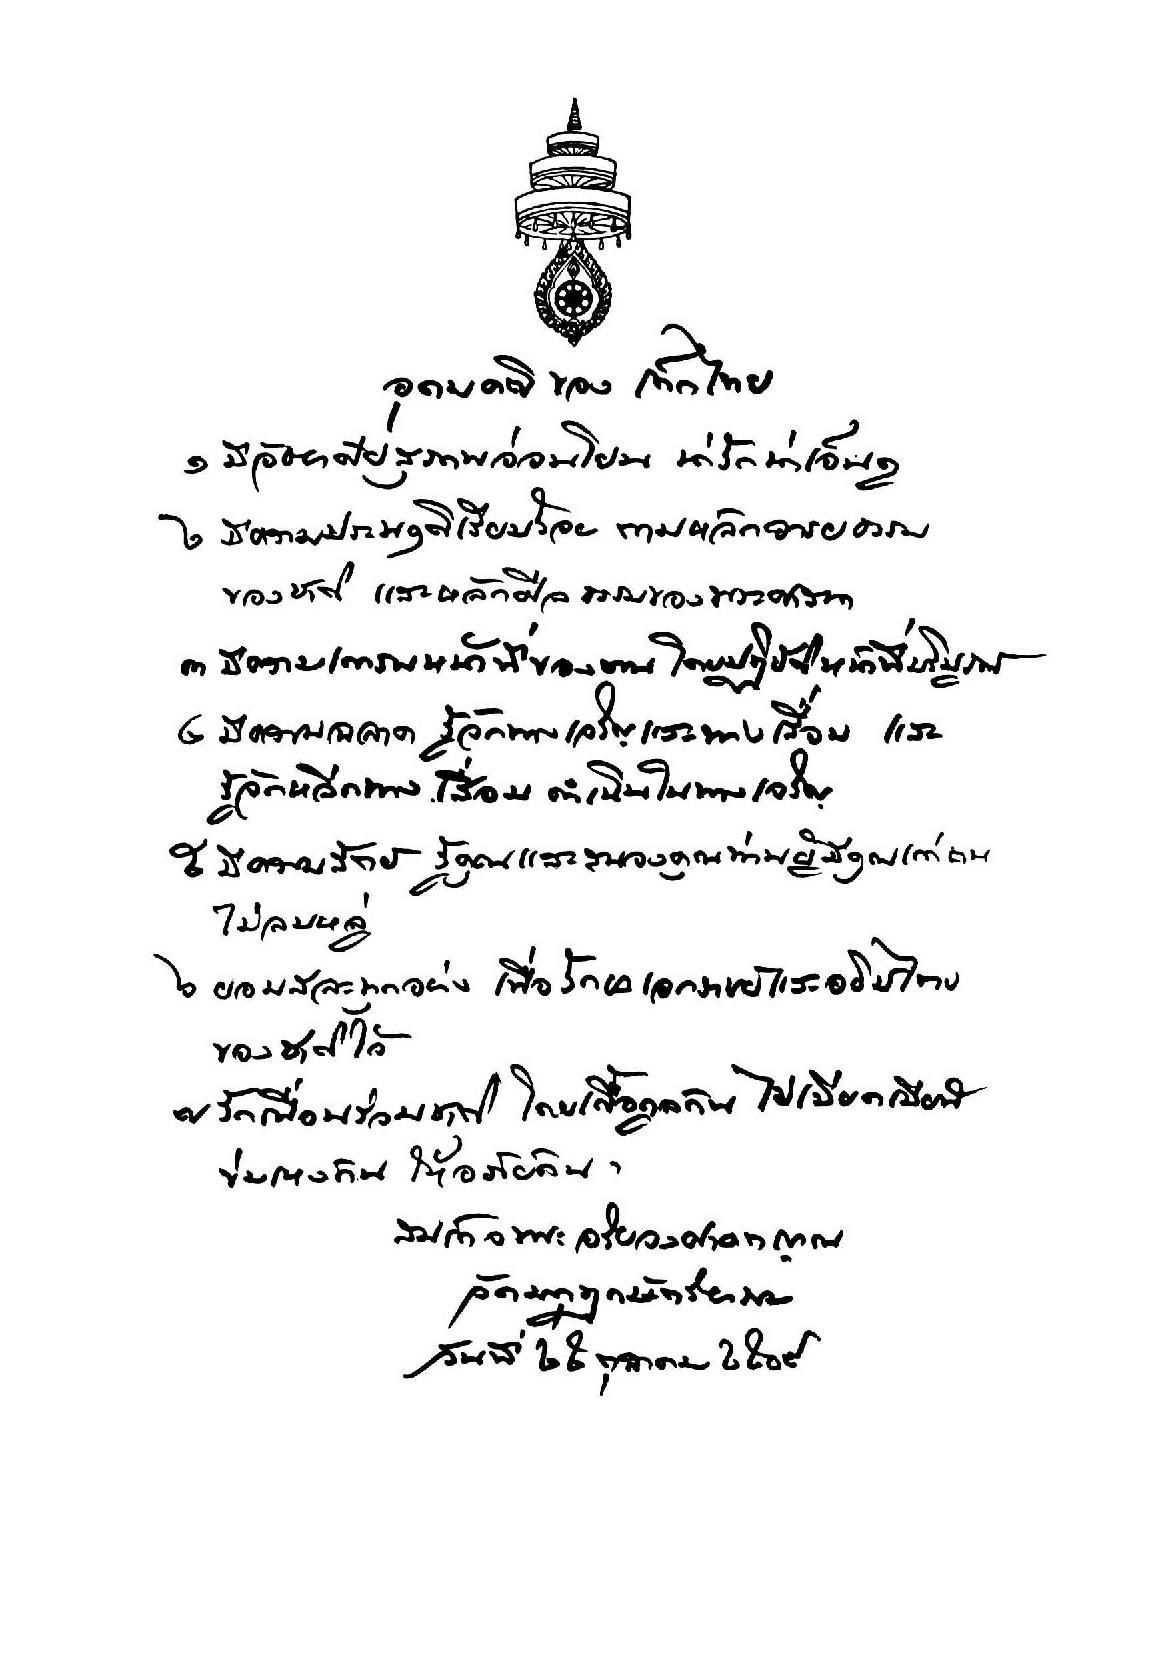 อุดมคติ ของ เด็กไทย
๑ มีอัธยาศัยสุภาพอ่อนโยน น่ารักน่าเอ็นดู
๒ มีความประพฤติเรียบร้อย ตามหลักจรรยธรรม
ของชาติ และหลักศีลธรรมของพระศาสนา
๓ มีความเคารพหน้าที่ของตน โดยปฏิบัติหน้าที่บริบูรณ์
๔ มีความฉลาด รู้จักทางเจริญและทางเสื่อม และ
รู้จักหลีกทางเสื่อม ดำเนินในทางเจริญ
๕ มีความรักชาติ รู้คุณและสนองคุณท่านผู้มีคุณแก่ตน
ไม่ลบหลู่
๖ ยอมสละทุกอย่าง เพื่อรักษาเอกราชและอธิปไตย
ของชาติไว้
๗ รักเพื่อนร่วมชาติ โดยเกื้อกูลกัน ไม่เบียดเบียน
ข่มเหงกัน ให้อภัยกัน ฯ
สมเด็จพระอริยวงศาคตญาณ
วัดมกุฏกษัตริยาราม
วันที่ ๒๕ ตุลาคม ๒๕๐๙